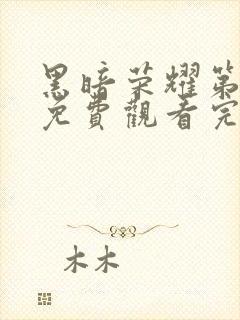 黑暗荣耀第
免費觀看完
木木